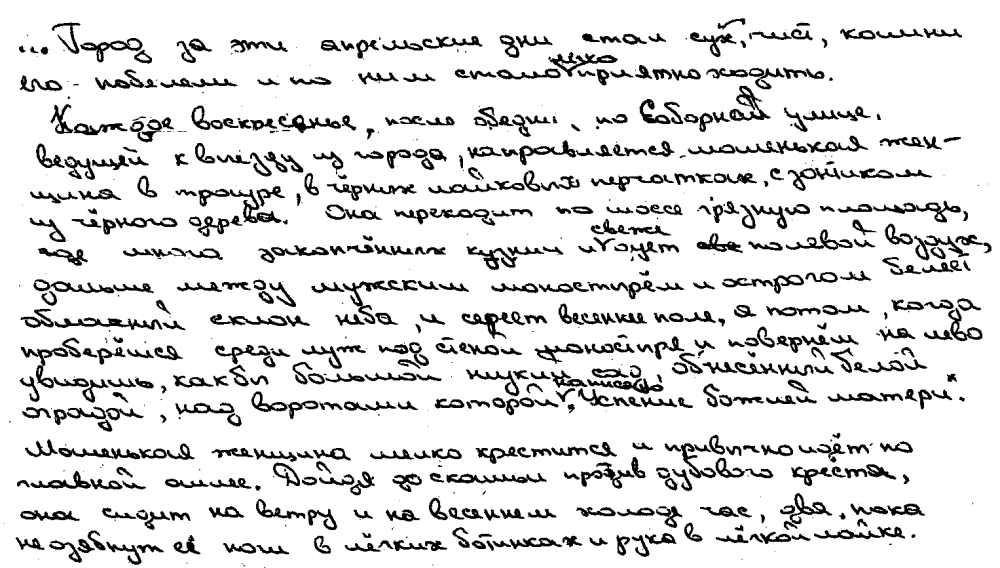 ... Город за эти апрельские дни стал сух, чист, камни
его побелели и по ним стало легко приятно ходить.
Каждое воскресенье, после обедни, по Соборной улице,
ведущей к выезду из города, направляется маленькая жен-
щина в трауре, в чёрных лайковых перчатках, с зонтиком
из чёрного дерева. Она переходит по шоссе грязную площадь,
где много закопчённых кузниц и свеже дует полевой воздух,
дальше между мужским монастырём и острогом белеет
облачный склон неба, и сереет весеннее поле, а потом, когда
проберёшься среди луж под стеной монастыря и повернём на лево
увидишь, как бы большой низкий сад, обнесённый белой
оградой, над воротами которой написано „Успение божией матери".
Маленькая женщина мелко крестится и привычно идёт по
главной аллее. Дойдя до скамьи против дубового креста,
она сидит на ветру и на весеннем холоде час, два, пока
не озябнут её ноги в лёгких ботинках и рука в лёгкой лайке.